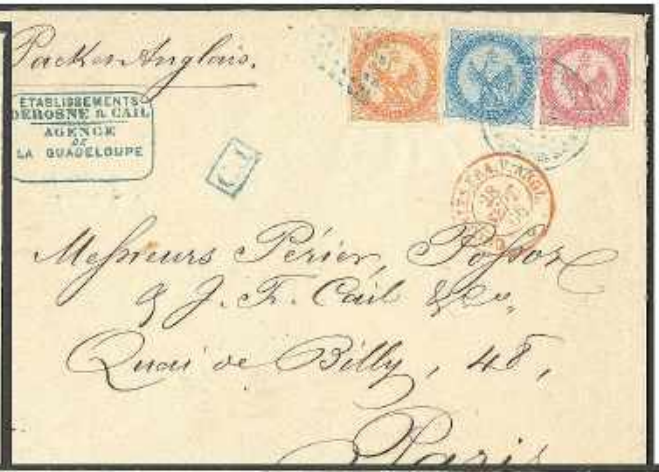 Packet Anglais.
ETABLISSEMENTS
DEROSNE & CAIL
AGENCE
DE
LA GUADELOUPE
Messieurs Périer, Possoz
& J. F. Cail & Co.
Quai de Billy, 48,
Paris